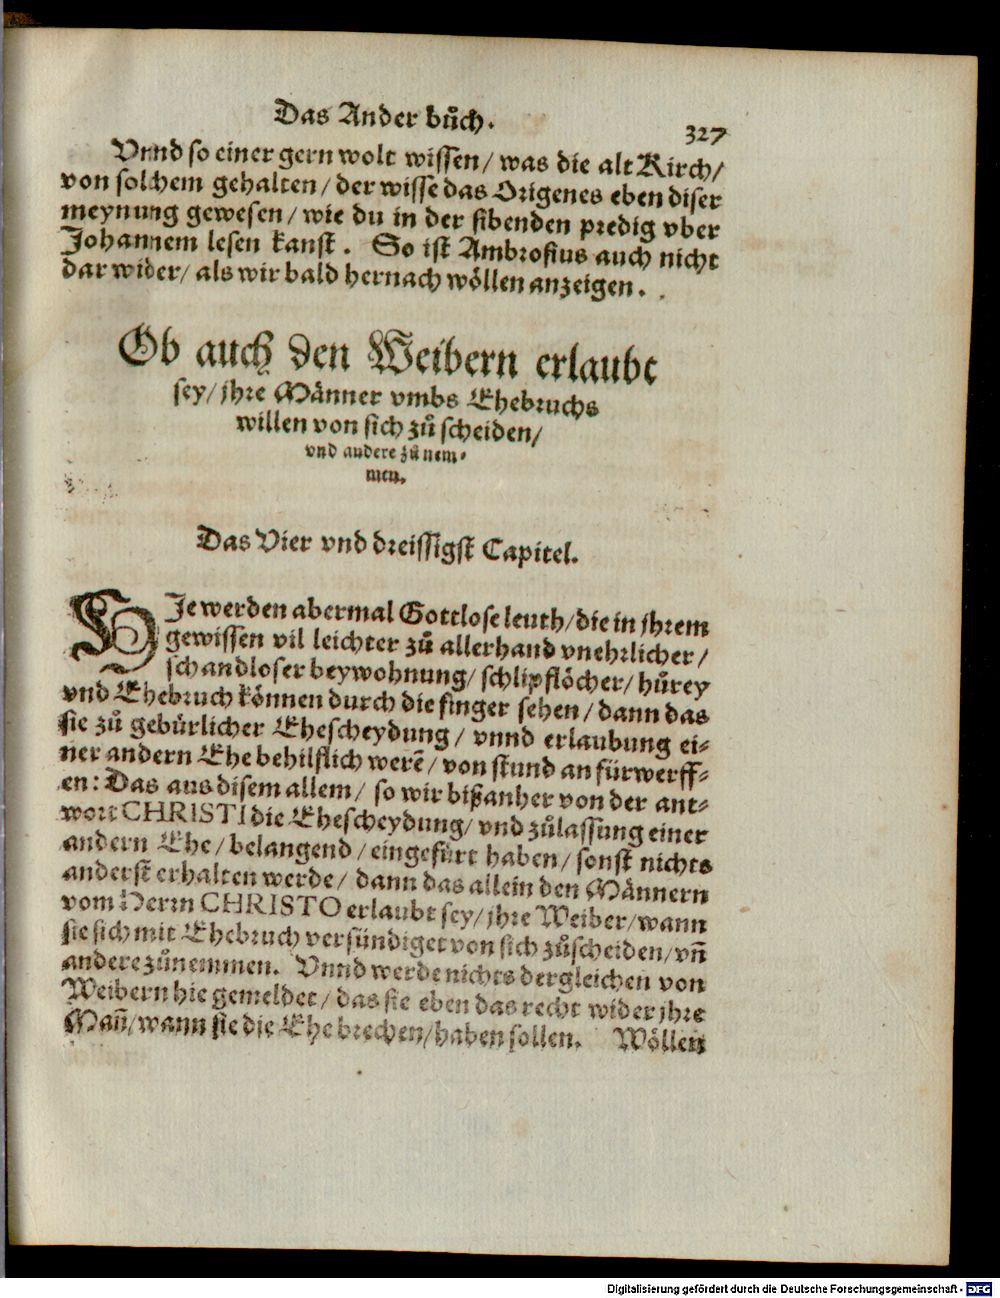 Das Ander bůch.
327
Vnnd so einer gern wolt wissen/ was die alt Kirch/
von solchem gehalten/ der wisse das Origenes eben diser
meynung gewesen/ wie du in der sibenden predig vber
Johannem lesen kanst. So ist Ambrosius auch nicht
dar wider/ als wir bald hernach wöllen anzeigen.
Ob auch den Weibern erlaubt
sey/ jhre Männer vmbs Ehebruchs
willen von sich zů scheiden/
vnd andere zů nem-
men.
Das Vier vnd dreissigst Capitel.
HJe werden abermal Gottlose leuth/ die in jhrem
gewissen vil leichter zů allerhand vnehrlicher/
schandloser beywohnung/ schlipflöcher/ hůrey
vnd Ehebruch können durch die finger sehen/ dann das
sie zů gebürlicher Ehescheydung/ vnnd erlaubung ei-
ner andern Ehe behilflich werē/ von stund an fürwerff-
en: Das aus disem allem/ so wir bißanher von der ant-
wort CHRISTI die Ehescheydung/ vnd zůlassung einer
andern Ehe/ belangend/ eingefürt haben/ sonst nichts
anderst erhalten werde/ dann das allein den Männern
vom Herrn CHRISTO erlaubt sey/ jhre Weiber/ wann
sie sich mit Ehebruch versündiget von sich zůscheiden/ vñ
andere zůnemmen. Vnnd werde nichts dergleichen von
Weibern hie gemeldet/ das sie eben das recht wider jhre
Mañ/ wann sie die Ehe brechen/ haben sollen. Wöllen
Digitalisierung gefördert durch die Deutsche Forschungsgemeinschaft - DFG